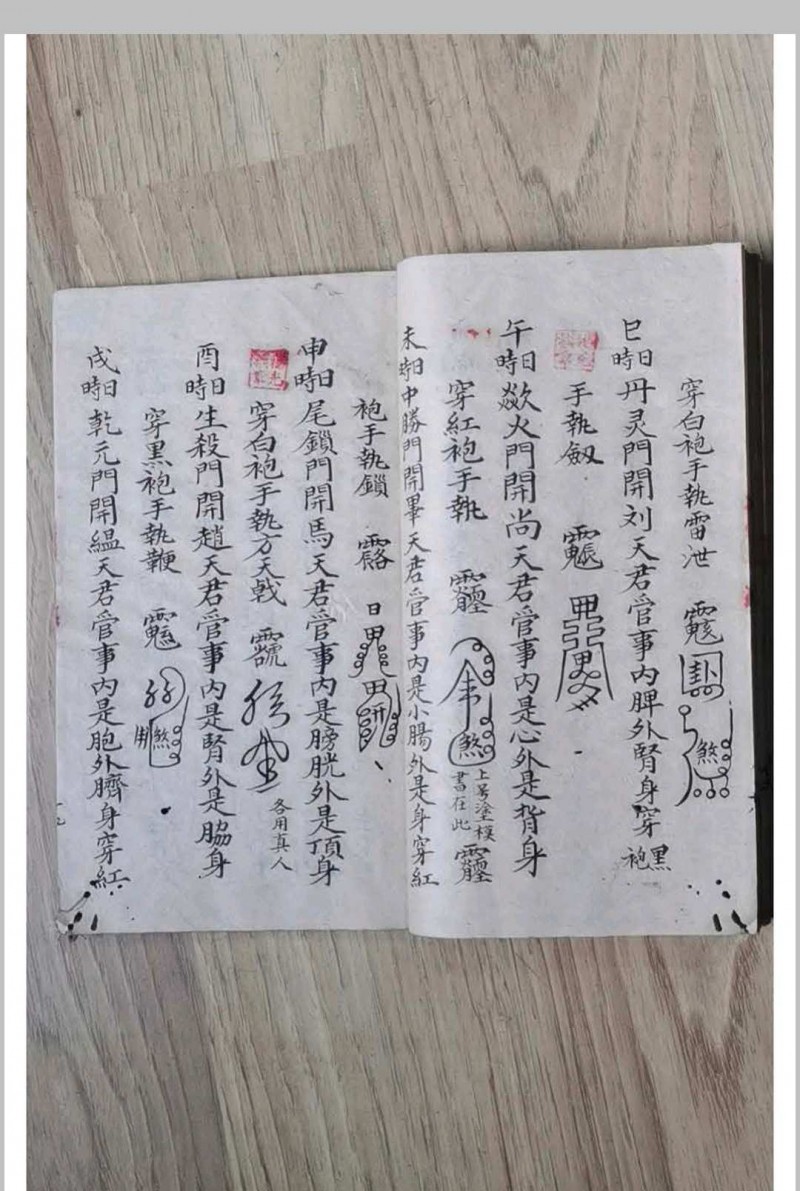 穿白袍手執雷泄
巳日時丹灵門開刘天君管事內脾外腎身穿黑袍
手執劔
午日時焱火門開尚天君管事內是心外是背身
穿紅袍手執
煞
上号塗模
書在此
未日時中勝門開畢天君管事內是小腸外是身穿紅
袍手執鎖
申日時尾鎖門開馬天君管事內是膀胱外是頂身
穿白袍手執方天戟
各用真人
酉日時生殺門開趙天君管事內是腎外是脇身
穿黑袍手執鞭
戌日時乾元門開緼天君管事內是胞外臍身穿紅